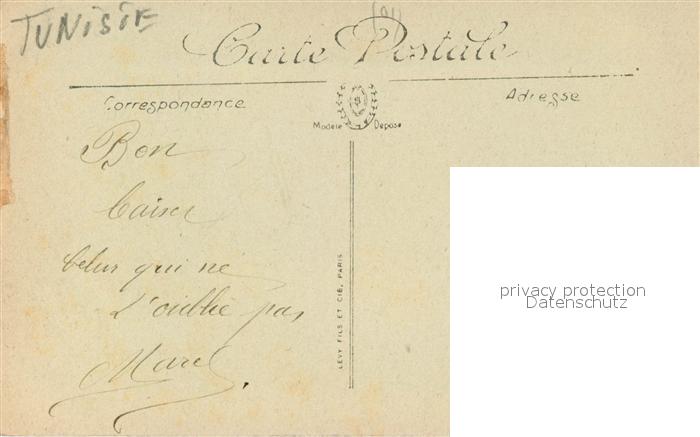 TUNISIE
Carte Postale
Correspondance
Adresse
Modèle Déposé
Bon
baiser
celui qui ne
t'oublie pas
Marcel
LEVY FILS ET CIE, PARIS
privacy protection
Datenschutz